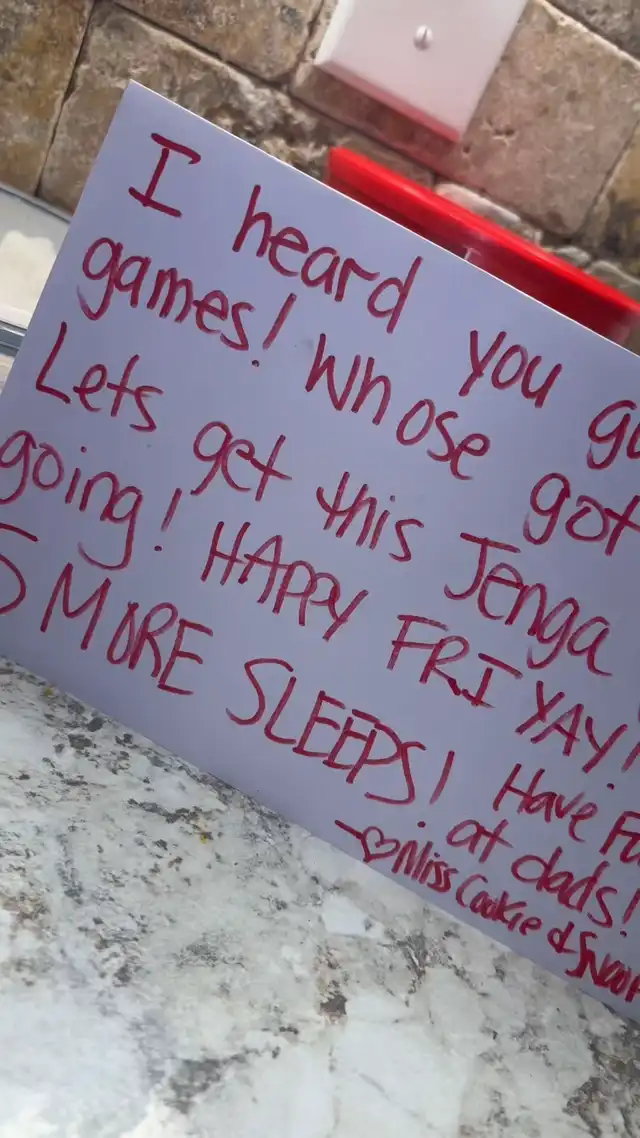 I heard you
games! Whose got
Lets get this Jenga
going! HAPPY FRIYAY!
5 MORE SLEEPS! Have
at dads!
-♡Miss Cookie &